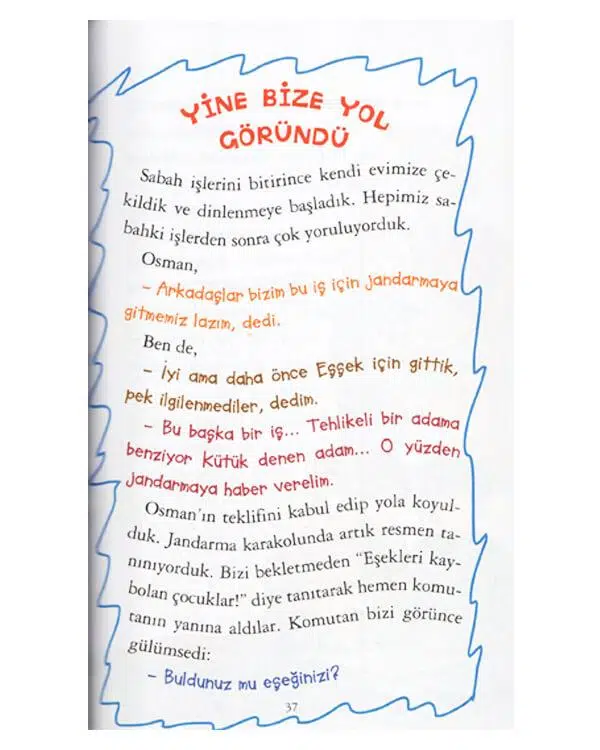 YİNE BİZE YOL
GÖRÜNDÜ
Sabah işlerini bitirince kendi evimize çe-
kildik ve dinlenmeye başladık. Hepimiz sa-
bahki işlerden sonra çok yoruluyorduk.
Osman,
– Arkadaşlar bizim bu iş için jandarmaya
gitmemiz lazım, dedi.
Ben de,
– İyi ama daha önce Eşşek için gittik,
pek ilgilenmediler, dedim.
– Bu başka bir iş... Tehlikeli bir adama
benziyor Kütük denen adam... O yüzden
jandarmaya haber verelim.
Osman'ın teklifini kabul edip yola koyul-
duk. Jandarma karakolunda artık resmen ta-
nınıyorduk. Bizi bekletmeden "Eşekleri kay-
bolan çocuklar!" diye tanıtarak hemen komu-
tanın yanına aldılar. Komutan bizi görünce
gülümsedi:
– Buldunuz mu eşeğinizi?
37